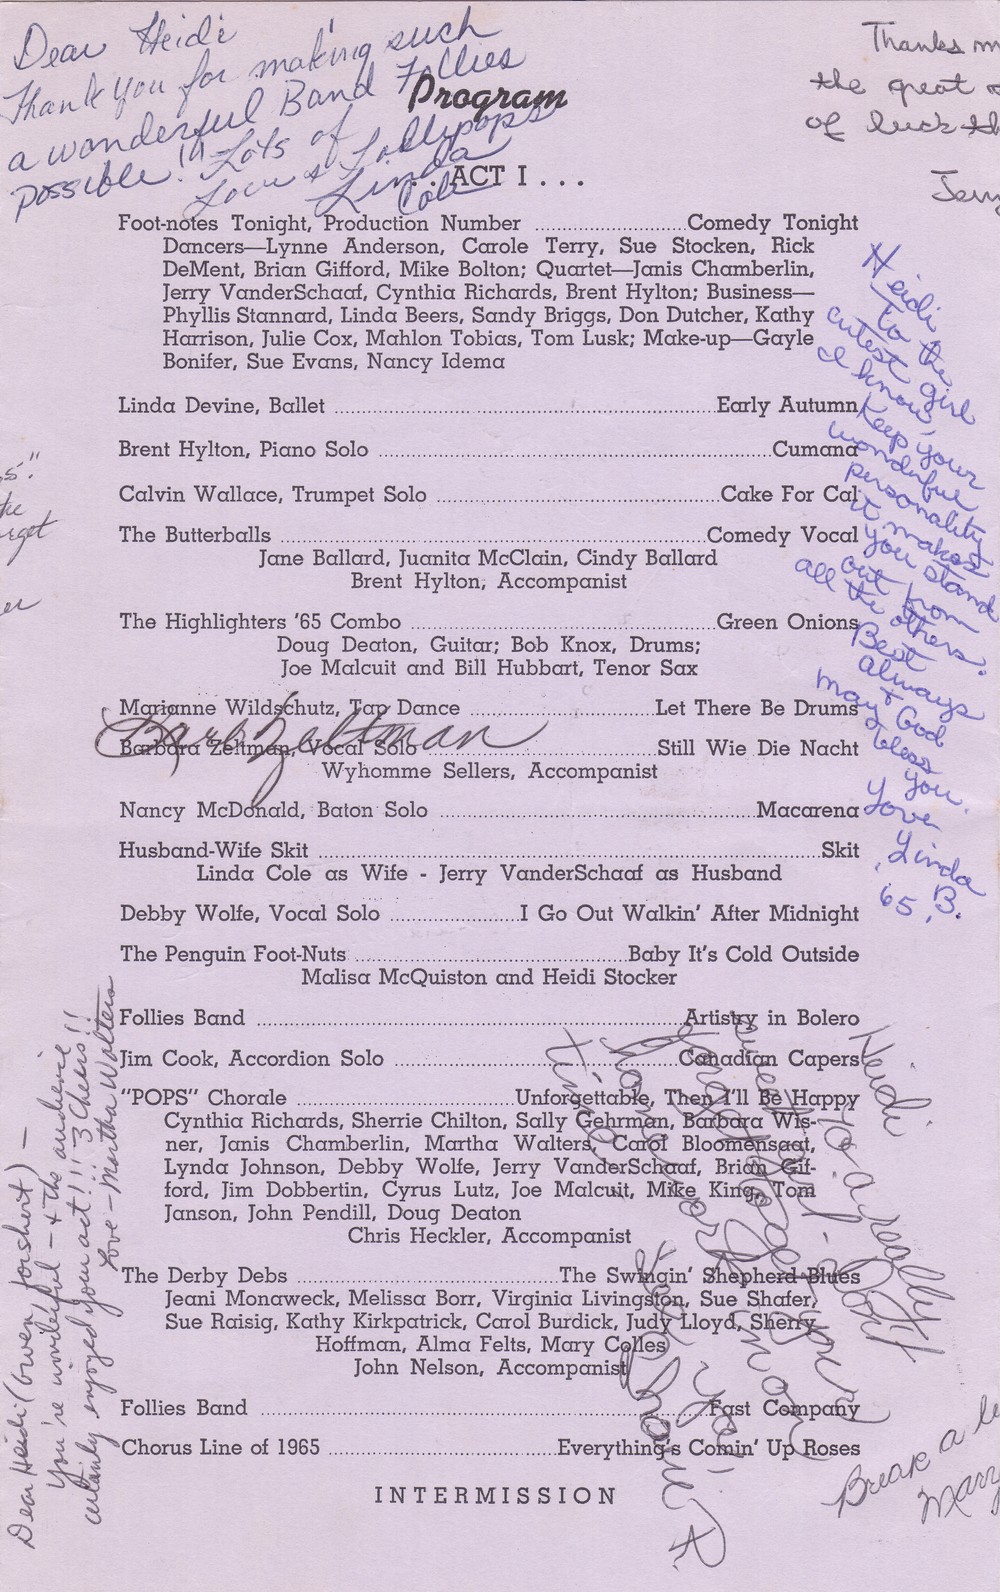 Dear Heidi
Thank you for making such
a wonderful Band Follies
possible!! Lots of
Love & Lollypops
Linda
Cole
Thanks
the great
of luck
Program
. . ACT I . . .
Foot-notes Tonight, Production Number ........ Comedy Tonight
Dancers—Lynne Anderson, Carole Terry, Sue Stocken, Rick
DeMent, Brian Gifford, Mike Bolton; Quartet—Janis Chamberlin,
Jerry VanderSchaaf, Cynthia Richards, Brent Hylton; Business—
Phyllis Stannard, Linda Beers, Sandy Briggs, Don Dutcher, Kathy
Harrison, Julie Cox, Mahlon Tobias, Tom Lusk; Make-up—Gayle
Bonifer, Sue Evans, Nancy Idema
Linda Devine, Ballet ........ Early Autumn
Brent Hylton, Piano Solo ........ Cumana
Calvin Wallace, Trumpet Solo ........ Cake For Cal
The Butterballs ........ Comedy Vocal
Jane Ballard, Juanita McClain, Cindy Ballard
Brent Hylton, Accompanist
The Highlighters '65 Combo ........ Green Onions
Doug Deaton, Guitar; Bob Knox, Drums;
Joe Malcuit and Bill Hubbart, Tenor Sax
Marianne Wildschutz, Tap Dance ........ Let There Be Drums
Barb Zeltman
Barbara Zeltman, Vocal Solo ........ Still Wie Die Nacht
Wyhomme Sellers, Accompanist
Nancy McDonald, Baton Solo ........ Macarena
Husband-Wife Skit ........ Skit
Linda Cole as Wife - Jerry VanderSchaaf as Husband
Debby Wolfe, Vocal Solo ........ I Go Out Walkin' After Midnight
The Penguin Foot-Nuts ........ Baby It's Cold Outside
Malisa McQuiston and Heidi Stocker
Follies Band ........ Artistry in Bolero
Jim Cook, Accordion Solo ........ Canadian Capers
"POPS" Chorale ........ Unforgettable, Then I'll Be Happy
Cynthia Richards, Sherrie Chilton, Sally Gehrman, Barbara Wis-
ner, Janis Chamberlin, Martha Walters, Carol Bloomensaat,
Lynda Johnson, Debby Wolfe, Jerry VanderSchaaf, Brian Gif-
ford, Jim Dobbertin, Cyrus Lutz, Joe Malcuit, Mike King, Tom
Janson, John Pendill, Doug Deaton
Chris Heckler, Accompanist
The Derby Debs ........ The Swingin' Shepherd Blues
Jeani Monaweck, Melissa Borr, Virginia Livingston, Sue Shafer,
Sue Raisig, Kathy Kirkpatrick, Carol Burdick, Judy Lloyd, Sherry
Hoffman, Alma Felts, Mary Colles
John Nelson, Accompanist
Follies Band ........ Fast Company
Chorus Line of 1965 ........ Everything's Comin' Up Roses
INTERMISSION
Heidi
To the
cutest girl
I know,
Keep your
wonderful
personality
it makes
you stand
out from
all the others.
Best
always
& God
may bless
you.
Love
Linda
'65, B.
Dear Heidi (Gwen, for short) —
You're wonderful — & the audience
certainly enjoyed your act!!! 3 Cheers!!
Love — Martha Walters
Heidi
To a really
sweet girl - Don't
ever lose your
humor
time
Break a